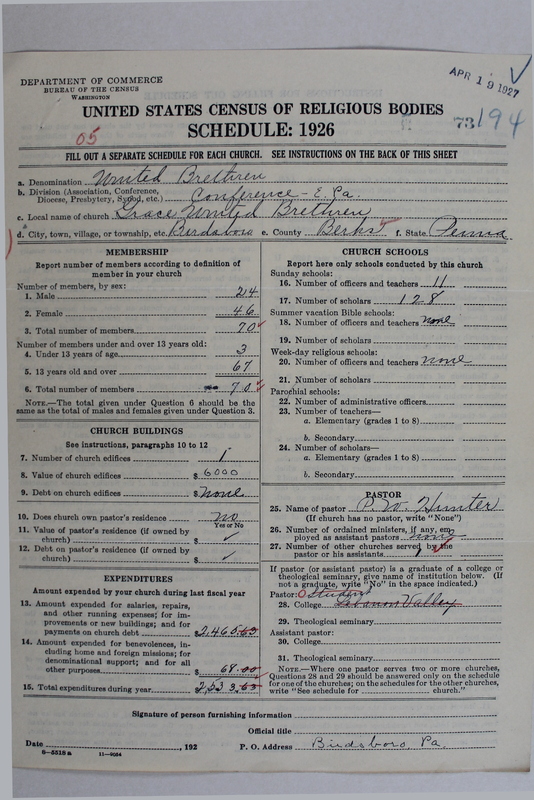 DEPARTMENT OF COMMERCE
BUREAU OF THE CENSUS
WASHINGTON
APR 19 1927
UNITED STATES CENSUS OF RELIGIOUS BODIES
SCHEDULE: 1926
73 194
05
FILL OUT A SEPARATE SCHEDULE FOR EACH CHURCH. SEE INSTRUCTIONS ON THE BACK OF THIS SHEET
a. Denomination United Brethren
b. Division (Association, Conference, Diocese, Presbytery, Synod, etc.) Conference - E. Pa.
c. Local name of church Grace United Brethren
d. City, town, village, or township, etc. Birdsboro e. County Berks f. State Penna
MEMBERSHIP
Report number of members according to definition of
member in your church
Number of members, by sex:
1. Male 24
2. Female 46
3. Total number of members 70
Number of members under and over 13 years old:
4. Under 13 years of age 3
5. 13 years old and over 67
6. Total number of members 70
NOTE.—The total given under Question 6 should be the
same as the total of males and females given under Question 3.
CHURCH BUILDINGS
See instructions, paragraphs 10 to 12
7. Number of church edifices 1
8. Value of church edifices $ 6000
9. Debt on church edifices $ None
10. Does church own pastor's residence No
Yes or No
11. Value of pastor's residence (if owned by
church) $
12. Debt on pastor's residence (if owned by
church) $
EXPENDITURES
Amount expended by your church during last fiscal year
13. Amount expended for salaries, repairs,
and other running expenses; for im-
provements or new buildings; and for
payments on church debt $ 2,465.63
14. Amount expended for benevolences, in-
cluding home and foreign missions; for
denominational support; and for all
other purposes $ 68.00
15. Total expenditures during year $ 2,533.63
CHURCH SCHOOLS
Report here only schools conducted by this church
Sunday schools:
16. Number of officers and teachers 11
17. Number of scholars 128
Summer vacation Bible schools:
18. Number of officers and teachers none
19. Number of scholars
Week-day religious schools:
20. Number of officers and teachers none
21. Number of scholars
Parochial schools:
22. Number of administrative officers
23. Number of teachers—
a. Elementary (grades 1 to 8)
b. Secondary
24. Number of scholars—
a. Elementary (grades 1 to 8)
b. Secondary
PASTOR
25. Name of pastor P. W. Hunter
(If church has no pastor, write "None")
26. Number of ordained ministers, if any, em-
ployed as assistant pastors none
27. Number of other churches served by the
pastor or his assistants
If pastor (or assistant pastor) is a graduate of a college or
theological seminary, give name of institution below. (If
not a graduate, write "No" in the space indicated.)
Pastor: O Student
28. College Lebanon Valley
29. Theological seminary
Assistant pastor:
30. College
31. Theological seminary
NOTE.—Where one pastor serves two or more churches,
Questions 28 and 29 should be answered only on the schedule
for one of the churches; on the schedules for the other churches,
write "See schedule for church."
Signature of person furnishing information
Official title
Date , 192 P. O. Address Birdsboro, Pa.
8—5518 a 11—9264